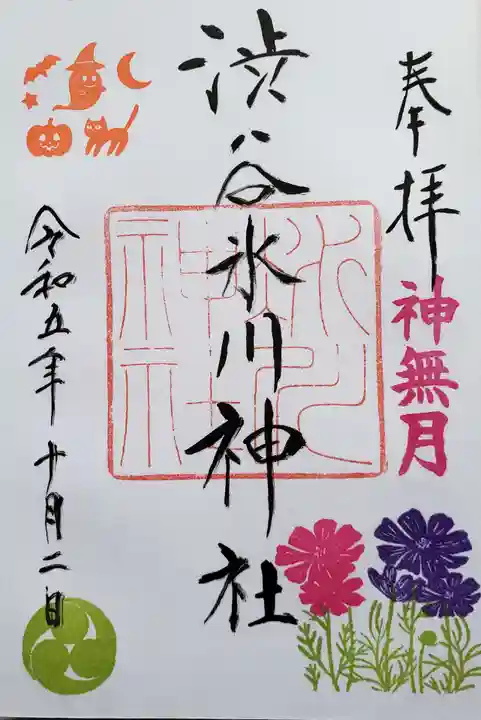 奉拝
神無月
渋谷氷川神社
氷川
神社
令和五年十月二日